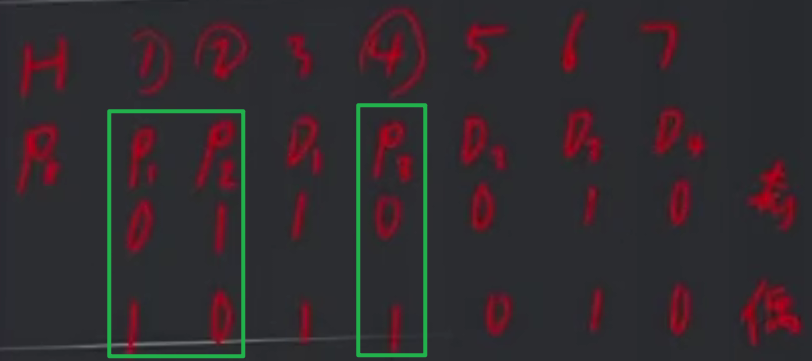 H ① ② 3 ④ 5 6 7
P₁ P₂ D₁ P₃ D₂ D₃ D₄
0 1 1 0 0 1 0 奇
1 0 1 1 0 1 0 偶